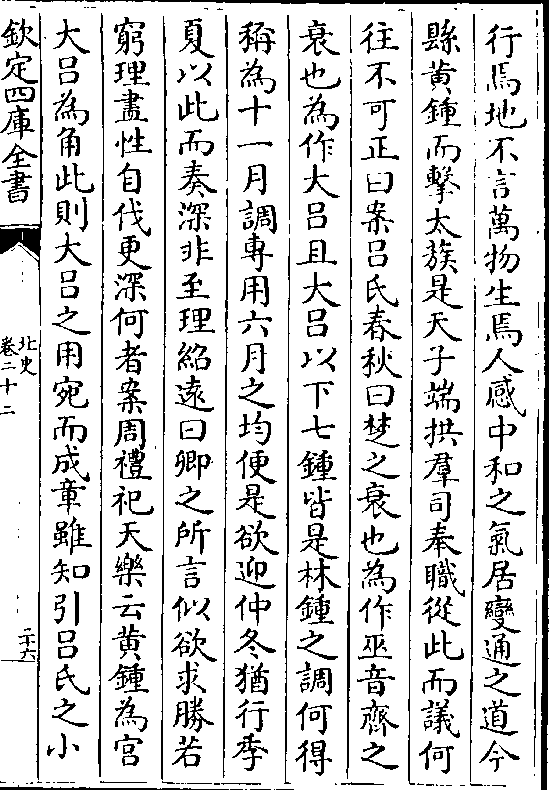 行焉地不言萬物生焉人感中和之氣居變通之道今
縣黃鍾而擊太簇是天子端拱羣司奉職從此而議何
往不可正曰案呂氏春秋曰楚之衰也為作巫音齊之
衰也為作大呂且大呂以下七鍾皆是林鍾之調何得
稱為十一月調專用六月之均便是欲迎仲冬猶行季
夏以此而奏深非至理紹遠曰卿之所言似欲求勝若
窮理盡性自伐更深何者案周禮祀天樂云黃鍾為宮
大呂為角此則大呂之用宛而成章雖知引呂氏之小
欽定四庫全書
北史
卷二十二
二十六